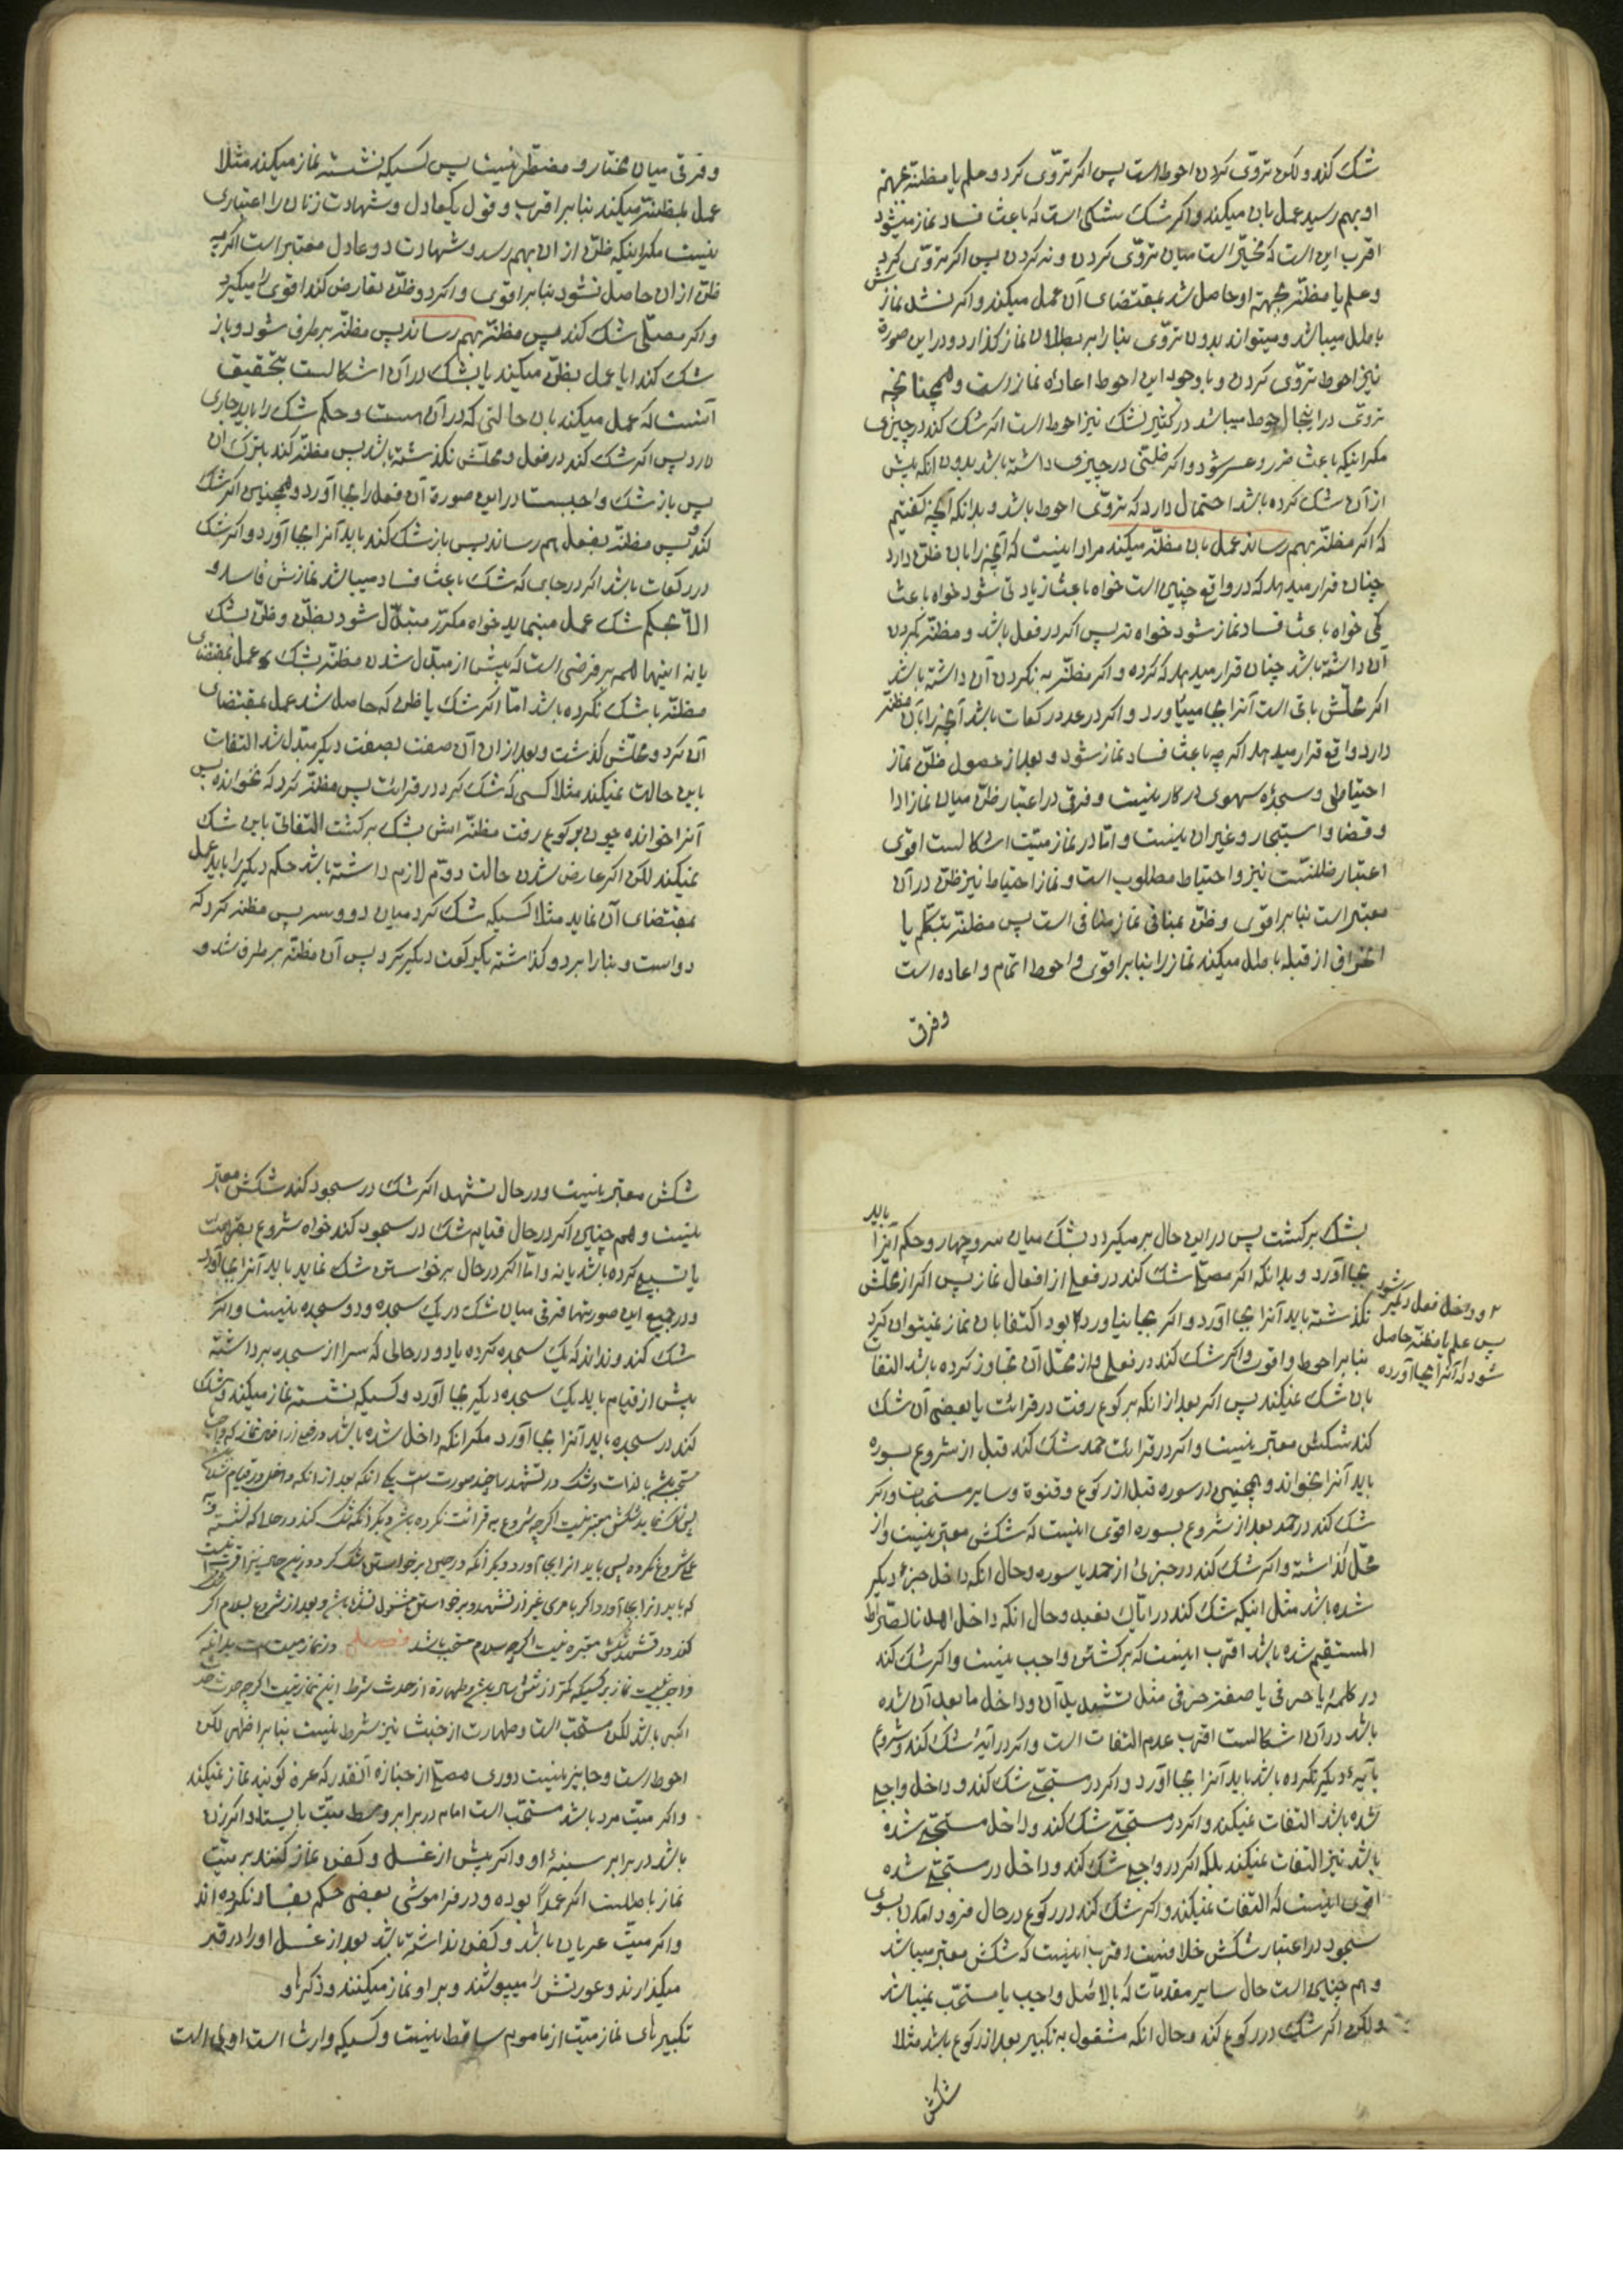 شک کند ولکن تروّی کردن احوط است پس اکر تروّی کرد و علم یا مظنّه بجهته
او بهم رسید عمل بان میکند و اکر شک شکی است که باعث فساد نماز میشود
اقرب این است که مخیّر است میان تروّی کردن و نه کردن پس اکر تروّی کرد
و علم یا مظنّه بجهته او حاصل شد بمقتضای آن عمل میکند و اکر نشد نمازش
باطل میباشد و میتواند بدون تروّی بنا را بر بطلان نماز کذارد و در این صورة
نیز احوط تروّی کردن و با وجود این احوط اعاده نماز است و همچنانچه
تروّی در اینجا احوط میباشد در کثیر الشک نیز احوط است اکر شک کند در چیزی
مکر اینکه باعث ضرر و عسر شود و اکر ظنّی در چیزی داشته باشد بدون انکه پیش
از آن شک کرده باشد احتمال دارد که تروّی احوط باشد و بدانکه آنچه کفتیم
که اکر مظنّه بهم رساند عمل بان مظنّه میکند مراد اینست که آنچه را بان ظن دارد
چنان قرار میدهد که در واقع چنین است خواه باعث زیادتی شود خواه باعث
کمی خواه باعث فساد نماز شود خواه نه پس اکر در فعل باشد و مظنّه بکردن
آن داشته باشد چنان قرار میدهد که کرده و اکر مظنّه به نکردن آن داشته باشد
اکر محلّش باقی است آنرا بجا میآورد و اکر در عدد رکعات باشد آنچه را بآن مظنّه
دارد واقع قرار میدهد اکر چه باعث فساد نماز شود و بعد از حصول ظن نماز
احتیاطی و سجدهٔ سهوی در کار نیست و فرقی در اعتبار ظنّ میان نماز ادا
و قضا و استیجار و غیر ان نیست و امّا در نماز میّت اشکالست اقوی
اعتبار مظنّه است نیز و احتیاط مطلوب است و نماز احتیاط نیز ظن در آن
معتبر است بنابر اقوی و ظن بمنافی نماز منافی است پس مظنّه بتکلّم یا
انحراف از قبله باطل میکند نماز را بنابر اقوی و احوط اتمام و اعاده است
وفرق
و فرقی میان مختار و مضطر نیست پس کسیکه نشسته نماز میکند مثلا
عمل بمظنّه میکند بنابر اقرب و قول یکعادل و شهادت زنان را اعتباری
نیست مکر اینکه ظن از ان بهم رسد و شهادت دو عادل معتبر است اکر چه
ظن از ان حاصل نشود بنابر اقوی و اکر دو ظن تعارض کند اقوی را میکیرد
و اکر مصلّی شک کند پس مظنّه بهم رساند پس مظنّه بر طرف شود و باز
شک کند ایا عمل بظنّ میکند یا بشک در آن اشکالست تحقیق
آنست که عمل میکند بان حالتی که در آن هست و حکم شک را باید جاری
دارد پس اکر شک کند در فعل و محلّش نکذشته باشد پس مظنّه کند بترک ان
پس باز شک واجبست در این صورة آن فعل را بجا آورد و همچنین اکر شک
کند و پس مظنّه بفعل بهم رساند پس باز شک کند باید آنرا بجا آورد و اکر شک
در رکعات باشد اکر در جای که شک باعث فساد میباشد نمازش فاسد و
الّا بحکم شک عمل مینماید خواه مکرّر متبدّل شود بظنّ و ظنّ بشک
یا نه اینها همه بر فرضی است که پیش از مبدّل شدن مظنّه بشک عمل بمقتضای
مظنّه یا شک نکرده باشد امّا اکر شک یا ظن که حاصل شد عمل بمقتضای
آن کرد و محلّش کذشت و بعد از ان آن صفت بصفت دیکر مبدّل شد التفات
باین حالت نمیکند مثلا کسی که شک کرد در قرائت پس مظنّه کرد که نخوانده پس
آنرا خوانده چون برکوع رفت مظنّه اش بشک برکشت التفاتی باین شک
نمیکند لکن اکر عارض شدن حالت دوّم لازم داشته باشد حکم دیکر را باید عمل
بمقتضای آن نماید مثلا کسیکه شک کرد میان دو و سه پس مظنّه کرد که
دو است و بنا را بر دو کذاشته یک رکعت دیکر کرد پس آن مظنّه بر طرف شد و
بشک برکشت پس در این حال برمیکردد بشک میان سه و چهار و حکم آنرا باید
بجا آورد و بدانکه اکر مصلّی شک کند در فعلی از افعال نماز پس اکر از محلّش
نکذشته باید آنرا بجا آورد و اکر بجا نیاورد بود اکتفا بان نماز نمیتوان کرد
۲ و داخل فعل دیکر نشود
پس علم یا مظنّه حاصل
شود که آنرا بجا آورده
بنابر احوط و اقوی و اکر شک کند در فعلی و از محلّ آن تجاوز کرده باشد التفات
بان شک نمیکند پس اکر بعد از انکه برکوع رفت در قرائت یا بعضی آن شک
کند شکش معتبر نیست و اکر در قرائت حمد شک کند قبل از شروع بسوره
باید آنرا بخواند و همچنین در سوره قبل از رکوع و قنوة و سایر مستحبات و اکر
شک کند در حمد بعد از شروع بسوره اقوی اینست که شکش معتبر نیست و از
محلّ کذاشته و اکر شک کند در جزئی از حمد یا سوره و حال انکه داخل جزء دیکر
شده باشد مثل اینکه شک کند در ایّاک نعبد و حال انکه داخل اهدنا الصّراط
المستقیم شده باشد اقرب اینست که برکشتن واجب نیست و اکر شک کند
در کلمهٔ یا حرفی یا صفت حرفی مثل تشدید آن و داخل ما بعد آن شده
باشد در آن اشکالست اقرب عدم التفات است و اکر در آیهٔ شک کند و شروع
بآیهٔ دیکر نکرده باشد باید آنرا بجا آورد و اکر در مستحبّی شک کند و داخل واجبی
شده باشد التفات نمیکند و اکر در مستحبّی شک کند و داخل مستحبّی شده
باشد نیز التفات نمیکند بلکه اکر در واجبی شک کند و داخل در مستحبّی شده
اقوی اینست که التفات نمیکند و اکر شک کند در رکوع در حال فرود آمدن بسوی
سجود در اعتبار شکش خلافست اقرب اینست که شکش معتبر میباشد
و هم چنین است حال سایر مقدمات که بالاصل واجب یا مستحب نمیباشد
ولکن اکر شک در رکوع کند و حال انکه مشغول به تکبیر بعد از رکوع باشد مثلا
شکش
شکش معتبر نیست و در حال تشهد اکر شک در سجود کند شکش معتبر
نیست و هم چنین اکر در حال قیام شک در سجود کند خواه شروع بقرائت
یا تسبیح کرده باشد یا نه و امّا اکر در حال برخواستن شک نماید باید آنرا بجا آورد
و در جمیع این صورتها فرقی میان شک در یک سجده و دو سجده نیست و اکر
شک کند و نداند که یک سجده کرده یا دو در حالی که سر از سجده برداشته
پیش از قیام باید یک سجده دیکر بجا آورد و کسیکه نشسته نماز میکند و شک
کند در سجده باید آنرا بجا آورد مکر انکه داخل شده باشد در فعلی از افعال نماز که واجب یا
مستحب باشد بالذات و شک در تشهد را چند صورت است یکی انکه بعد از انکه داخل در قیام شد
شک نماید شکش معتبر نیست اکر چه شروع به قرائت نکرده باشد دیکر انکه شک کند در حالی که نشسته و
شروع نکرده پس باید انرا بجا آورد و دیکر آنکه در حین برخواستن شک کرد و در این حال نیز اقرب اینست
که باید انرا بجا آورد اکر بامری غیر از تشهد و برخواستن مشغول نشده باشد و بعد از شروع بسلام اکر شک
کند در تشهد شکش معتبر نیست اکر چه سلام مستحب باشد فصل در نماز میت است بدانکه
واجب نیست نماز بر کسیکه کمتر از شش سال باشد و طهارة از حدث شرط این نماز نیست اکر چه حدث
اکبر باشد لکن مستحبّ است و طهارت از خبث نیز شرط نیست بنابر اظهر لکن
احوط است و جایز نیست دوری مصلّی از جنازه آنقدر که عرفا کویند نماز نمیکند
و اکر میّت مرد باشد مستحبّ است امام در برابر وسط میّت بایستد و اکر زن
باشد در برابر سینهٔ او و اکر پیش از غسل و کفن نماز کنند بر میّت
نماز باطلست اکر عمداً بوده و در فراموشی بعضی حکم بفساد نکرده اند
و اکر میّت عریان باشد و کفن نداشته باشد بعد از غسل او را در قبر
میکذارند و عورتش را میپوشند و بر او نماز میکنند و ذکرها و
تکبیرهای نماز میّت از ماموم ساقط نیست و کسیکه وارث است اولی است